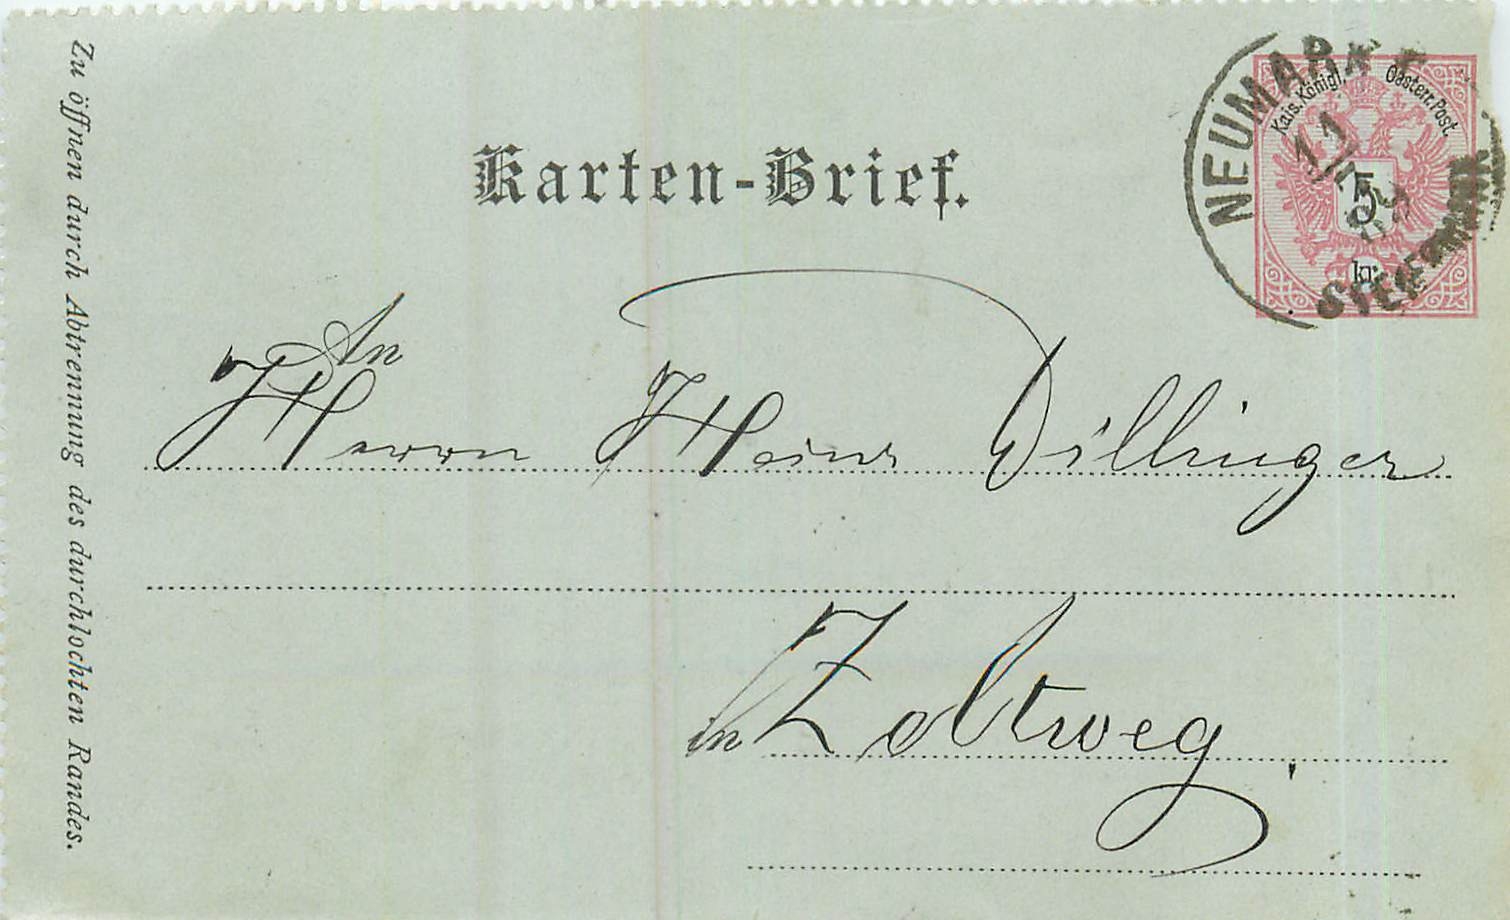 Karten-Brief.
Kais. Königl. Oesterr. Post.
5
kr.
NEUMARKT
11/7
89
STEIERMARK
An
Herrn Heinr Dillinger
in Zeltweg
Zu öffnen durch Abtrennung des durchlochten Randes.